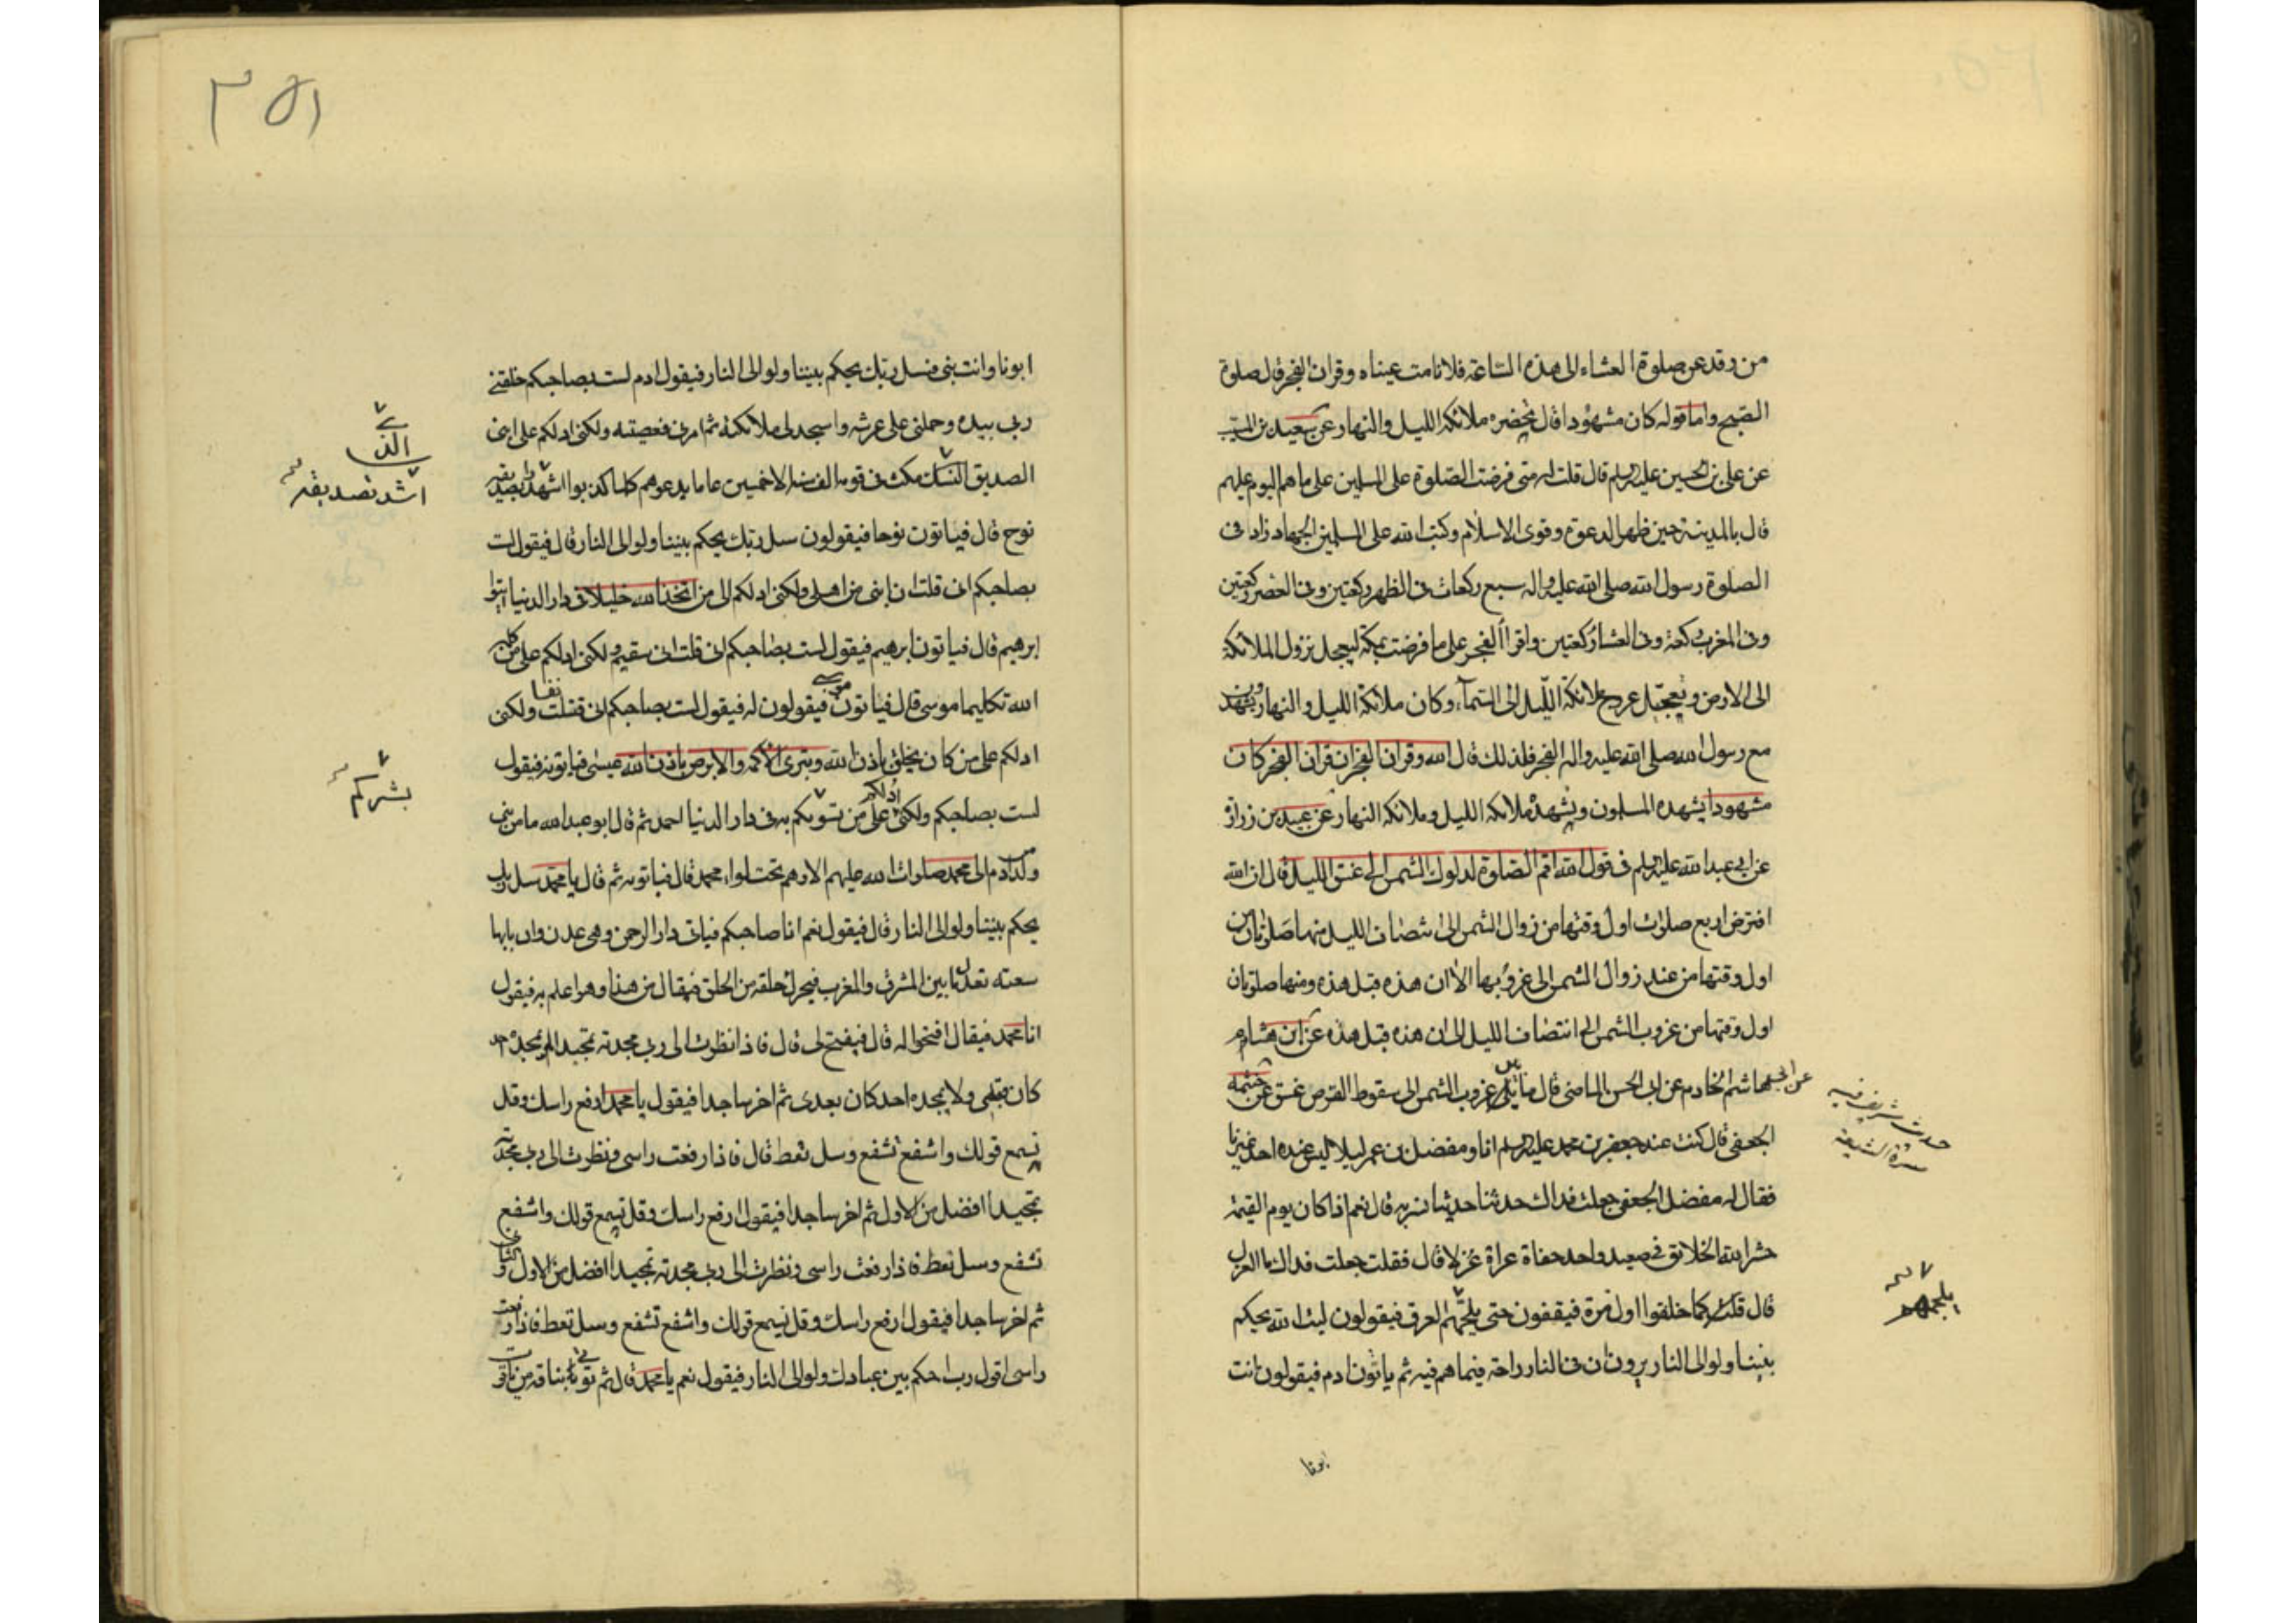 من رقد عن صلوة العشاء الى هذه الساعة فلا نامت عيناه وقران الفجر قال صلوة
الصبح واما قوله كان مشهودا قال تحضره ملائكة الليل والنهار عن سعيد بن المسيب
عن علي بن الحسين عليه السلم قال قلت له متى فرضت الصلوة على المسلمين على ما هم اليوم عليهم
قال بالمدينة حين ظهر الدعوة وقوى الاسلام وكتب الله على المسلمين الجهاد زاد في
الصلوة رسول الله صلى الله عليه واله سبع ركعات في الظهر ركعتين وفي العصر ركعتين
وفي المغرب ركعة وفي العشاء ركعتين واقرا الفجر على ما فرضت بمكة ليجعل نزول الملائكة
الى الارض وتعجيل عروج ملائكة الليل الى السماء وكان ملائكة الليل والنهار يشهدون
مع رسول الله صلى الله عليه واله الفجر فلذلك قال الله وقران الفجر ان قران الفجر كان
مشهودا يشهده المسلمون ويشهده ملائكة الليل وملائكة النهار عن عبيد بن زرارة
عن ابي عبد الله عليه السلم في قول الله اقم الصلوة لدلوك الشمس الى غسق الليل قال ان الله
افترض اربع صلوات اول وقتها من زوال الشمس الى انتصاف الليل منها صلوتان من
اول وقتها من عند زوال الشمس الى غروبها الا ان هذه قبل هذه ومنها صلوتان
اول وقتها من غروب الشمس الى انتصاف الليل الى ان هذه قبل هذه عن ابن هشام
هاشم الخادم عن ابي الحسن الماضي قال ما بين غروب الشمس الى سقوط القرص غسق عن خثيمة
الجعفي قال كنت عند جعفر بن محمد عليه السلم انا ومفضل بن عمر ليلا ليس عنده احد غيرنا
فقال له مفضل الجعفي جعلت فداك حدثنا حديثا نسر به قال نعم اذا كان يوم القيمة
حشر الله الخلائق في صعيد واحد حفاة عراة غرلا قال فقلت جعلت فداك ما الغرل
قال قلت كما خلقوا اول مرة فيقفون حتى يلجمهم العرق فيقولون ليت الله يحكم
بيننا ولو الى النار يرون ان في النار راحة فيما هم فيه ثم ياتون ادم فيقولون انت
حديث شريف فيه
يلجمهم
ابونا
٣٥١
ابونا وانت بنى فسل ربك يحكم بيننا ولو الى النار فيقول ادم لست بصاحبكم خلقني
ربي بيده وحملني على عرشه واسجد لي ملائكته ثم امرني فعصيته ولكني ادلكم على ابني
الصديق مكث في قومه الف سنة الا خمسين عاما يدعوهم كلما كذبوا اشتد تصديقه
نوح قال فياتون نوحا فيقولون سل ربك يحكم بيننا ولو الى النار قال فيقول لست
بصاحبكم اني قلت ان ابني من اهلي ولكني ادلكم الى من اتخذ الله خليلا في دار الدنيا ايتوا
ابرهيم قال فياتون ابرهيم فيقول لست بصاحبكم اني قلت اني سقيم ولكني ادلكم على من كلم
الله تكليما موسى قال فياتون موسى فيقولون له فيقول لست بصاحبكم اني قتلت نفسا ولكني
ادلكم على من كان يخلق باذن الله ويبرئ الاكمه والابرص باذن الله عيسى فياتونه فيقول
لست بصاحبكم ولكني ادلكم على من بشركم به في دار الدنيا احمد ثم قال ابو عبد الله ما من نبي
ولد ادم الى محمد صلوات الله عليهم الا وهم تحت لواء محمد قال فياتونه ثم قال يا محمد سل ربك
يحكم بيننا ولو الى النار قال فيقول نعم انا صاحبكم فياتي دار الرحمن وهي عدن وان بابها
سعته بعد ما بين المشرق والمغرب فيحرك حلقة من الحلق فيقال من هذا وهو اعلم به فيقول
انا محمد فيقال افتحوا له قال فيفتح لي قال فاذا نظرت الى ربي مجدته تمجيدا لم يمجده احد
كان قبلي ولا يمجده احد كان بعدي ثم اخر ساجدا فيقول يا محمد ارفع راسك وقل
تسمع قولك واشفع تشفع وسل تعط قال فاذا رفعت راسي ونظرت الى ربي مجدته
تمجيدا افضل من الاول ثم اخر ساجدا فيقول ارفع راسك وقل تسمع قولك واشفع
تشفع وسل تعط فاذا رفعت راسي ونظرت الى ربي مجدته تمجيدا افضل من الاول والثاني
ثم اخر ساجدا فيقول ارفع راسك وقل تسمع قولك واشفع تشفع وسل تعط فاذا رفعت
راسي اقول رب احكم بين عبادك ولو الى النار فيقول نعم يا محمد قال ثم يؤتى بناقة من ياقوت
اشتد تصديقه
بشركم